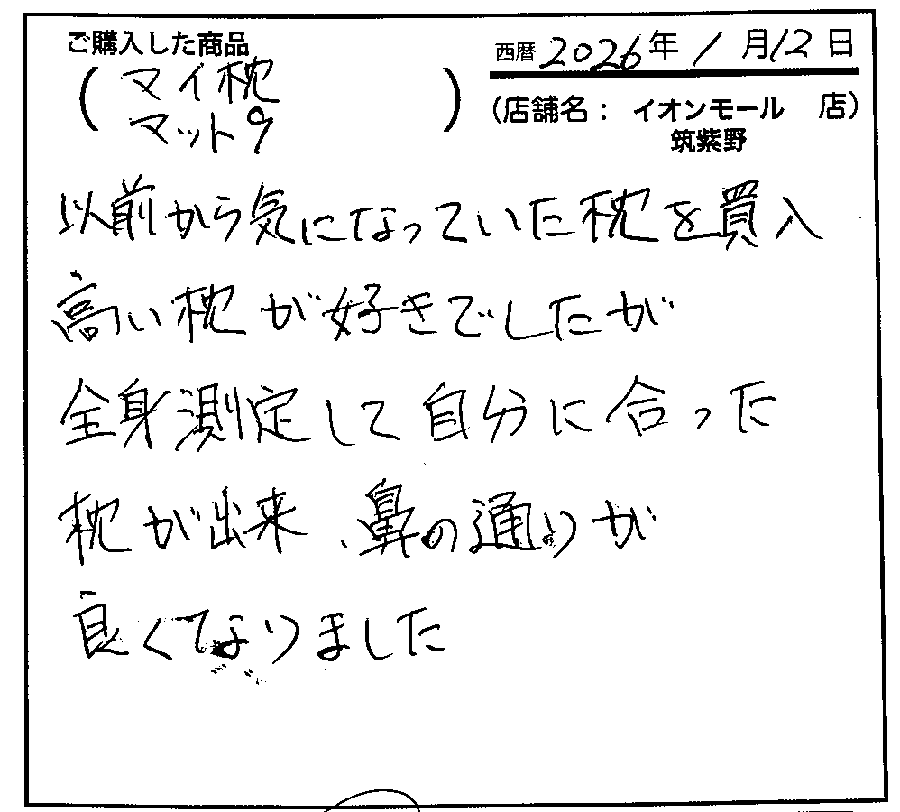 ご購入した商品
西暦 2026年 1月12日
(マイ枕
マット9)
(店舗名： イオンモール 店)
筑紫野
以前から気になっていた枕を買入
高い枕が好きでしたが
全身測定して自分に合った
枕が出来、鼻の通りが
良くなりました